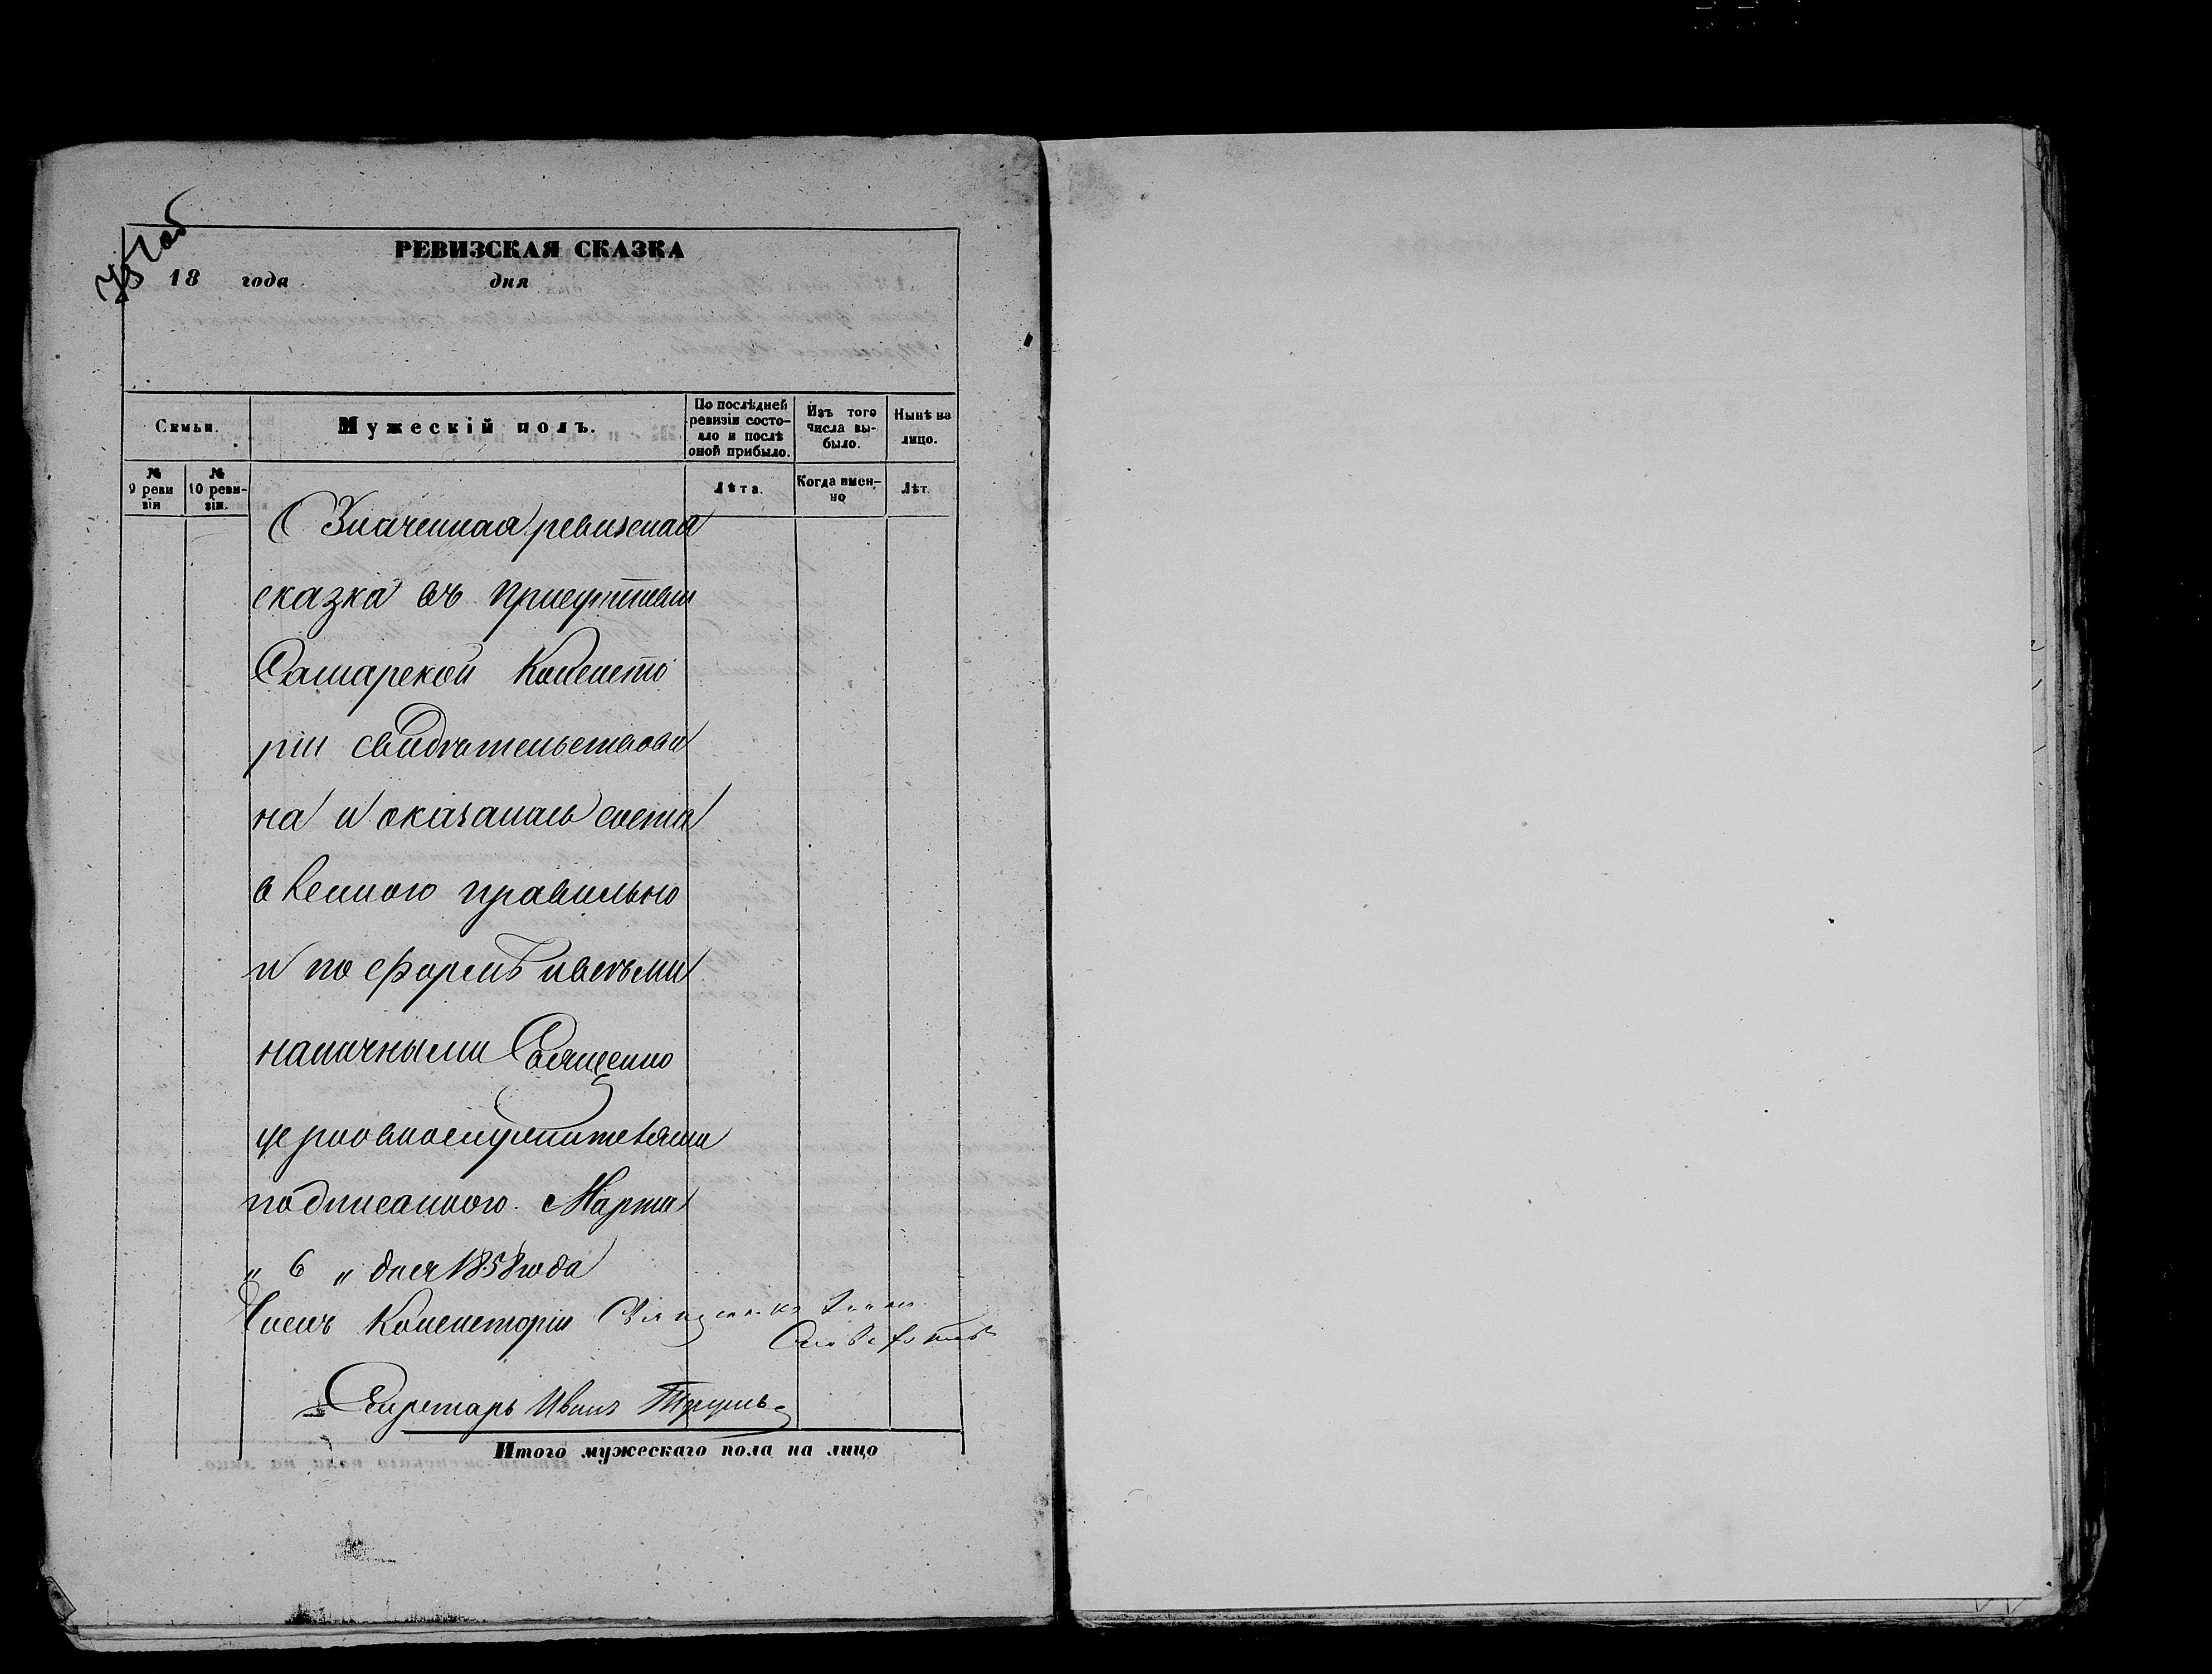 РЕВИЗСКАЯ СКАЗКА
18 года дня
Семьи.
Мужескій полъ.
По послѣдней ревизіи состо-
яло и послѣ оной прибыло.
Изъ того числа вы-
было.
Нынѣ на лицо.
№ 9 реви
зіи
№ 10 реви-
зіи.
Лѣта.
Когда имен-
но
Лѣт.
Означенная ревизская
сказка въ присутствіи
Самарской Консисто
ріи свидѣтельствова
на и оказалась соста
вленною правильно
и по формѣ и всѣми
наличными Священно
церковнослужителями
подписанною. Марта
„ 6 „ дня 1858 года
Членъ Консисторіи Священникъ
Секретарь Иванъ
Итого мужескаго пола на лицо